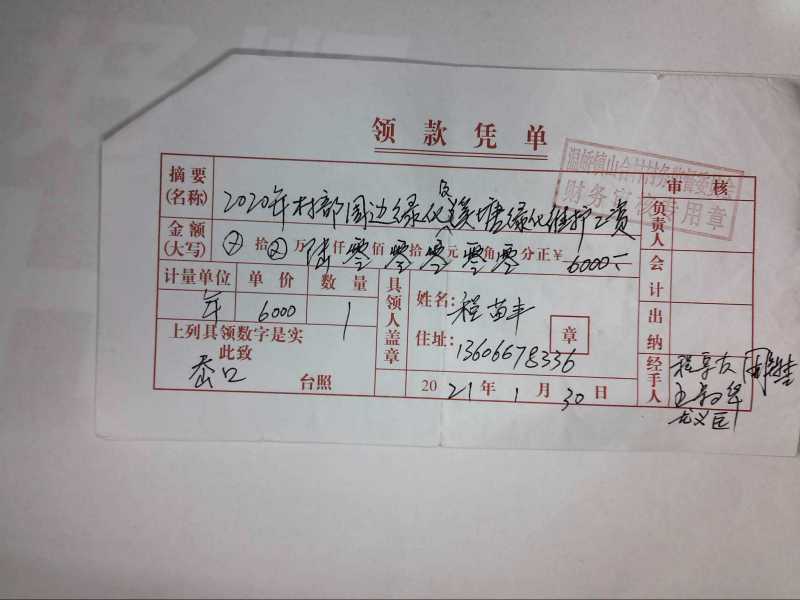 领款凭单
财务审核专用章
审核
摘要(名称) 2020年村部周边绿化及溪塘绿化维护工资
金额(大写) 拾 万陆仟零佰零拾零元零角零分正¥6000
计量单位 单价 数量
年 6000 1
上列具领数字是实
此致
岙口 台照
具领人盖章
姓名: 程苗丰
住址: 13606678336
章
2021年1月30日
负责人
会计
出纳
经手人